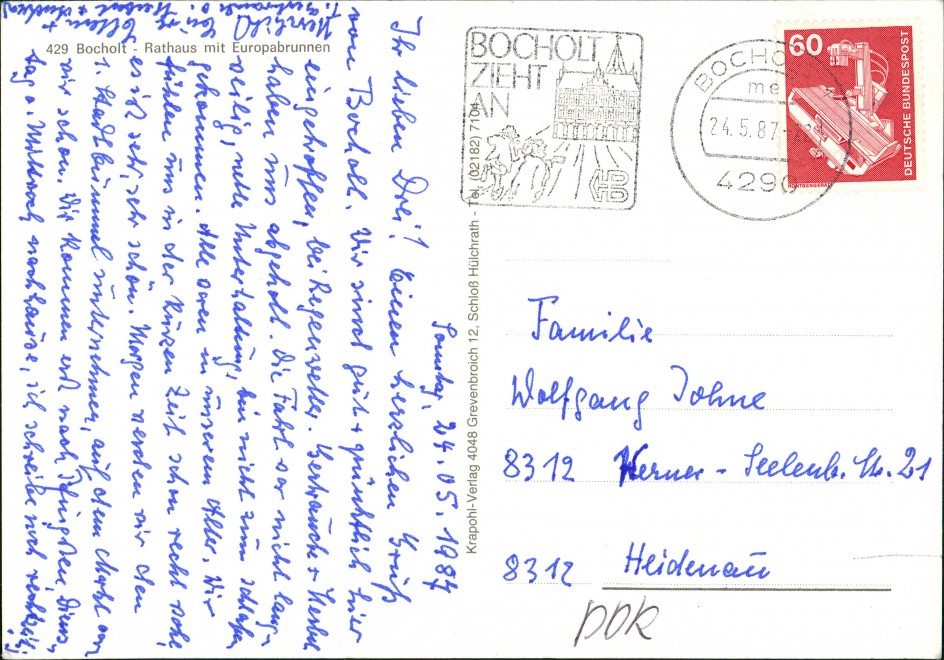 429 Bocholt - Rathaus mit Europabrunnen
Sonntag, 24.05.1987
Ihr lieben Drei! Einen herzlichen Gruß
von Bocholt. Wir sind gut + pünktlich hier
eingetroffen, bei Regenwetter. Gertraude + Herbert
haben uns abgeholt. Die Fahrt war nicht lang-
weilig, nette Unterhaltung, bin nicht zum schlafen
gekommen. Alle waren in unserem Alter. Wir
fühlen uns in der kurzen Zeit schon recht wohl
es ist sehr, sehr schön. Morgen werden wir den
1. Stadtbummel unternehmen, auf dem Markt waren
wir schon. Wir kommen erst nach Pfingsten, Diens-
tag o. Mittwoch nachhause, ich schreibe noch rechtzeitig
Herzlich
Krapohl-Verlag 4048 Grevenbroich 12, Schloß Hülchrath - Tel. (02182) 7104
BOCHOLT
ZIEHT
AN
BOCHOLT
24.5.87
4290
60
DEUTSCHE BUNDESPOST
RÖNTGENGERÄT
Familie
Wolfgang Johne
8312 Werner-Seelenb. Str. 21
8312 Heidenau
PDK